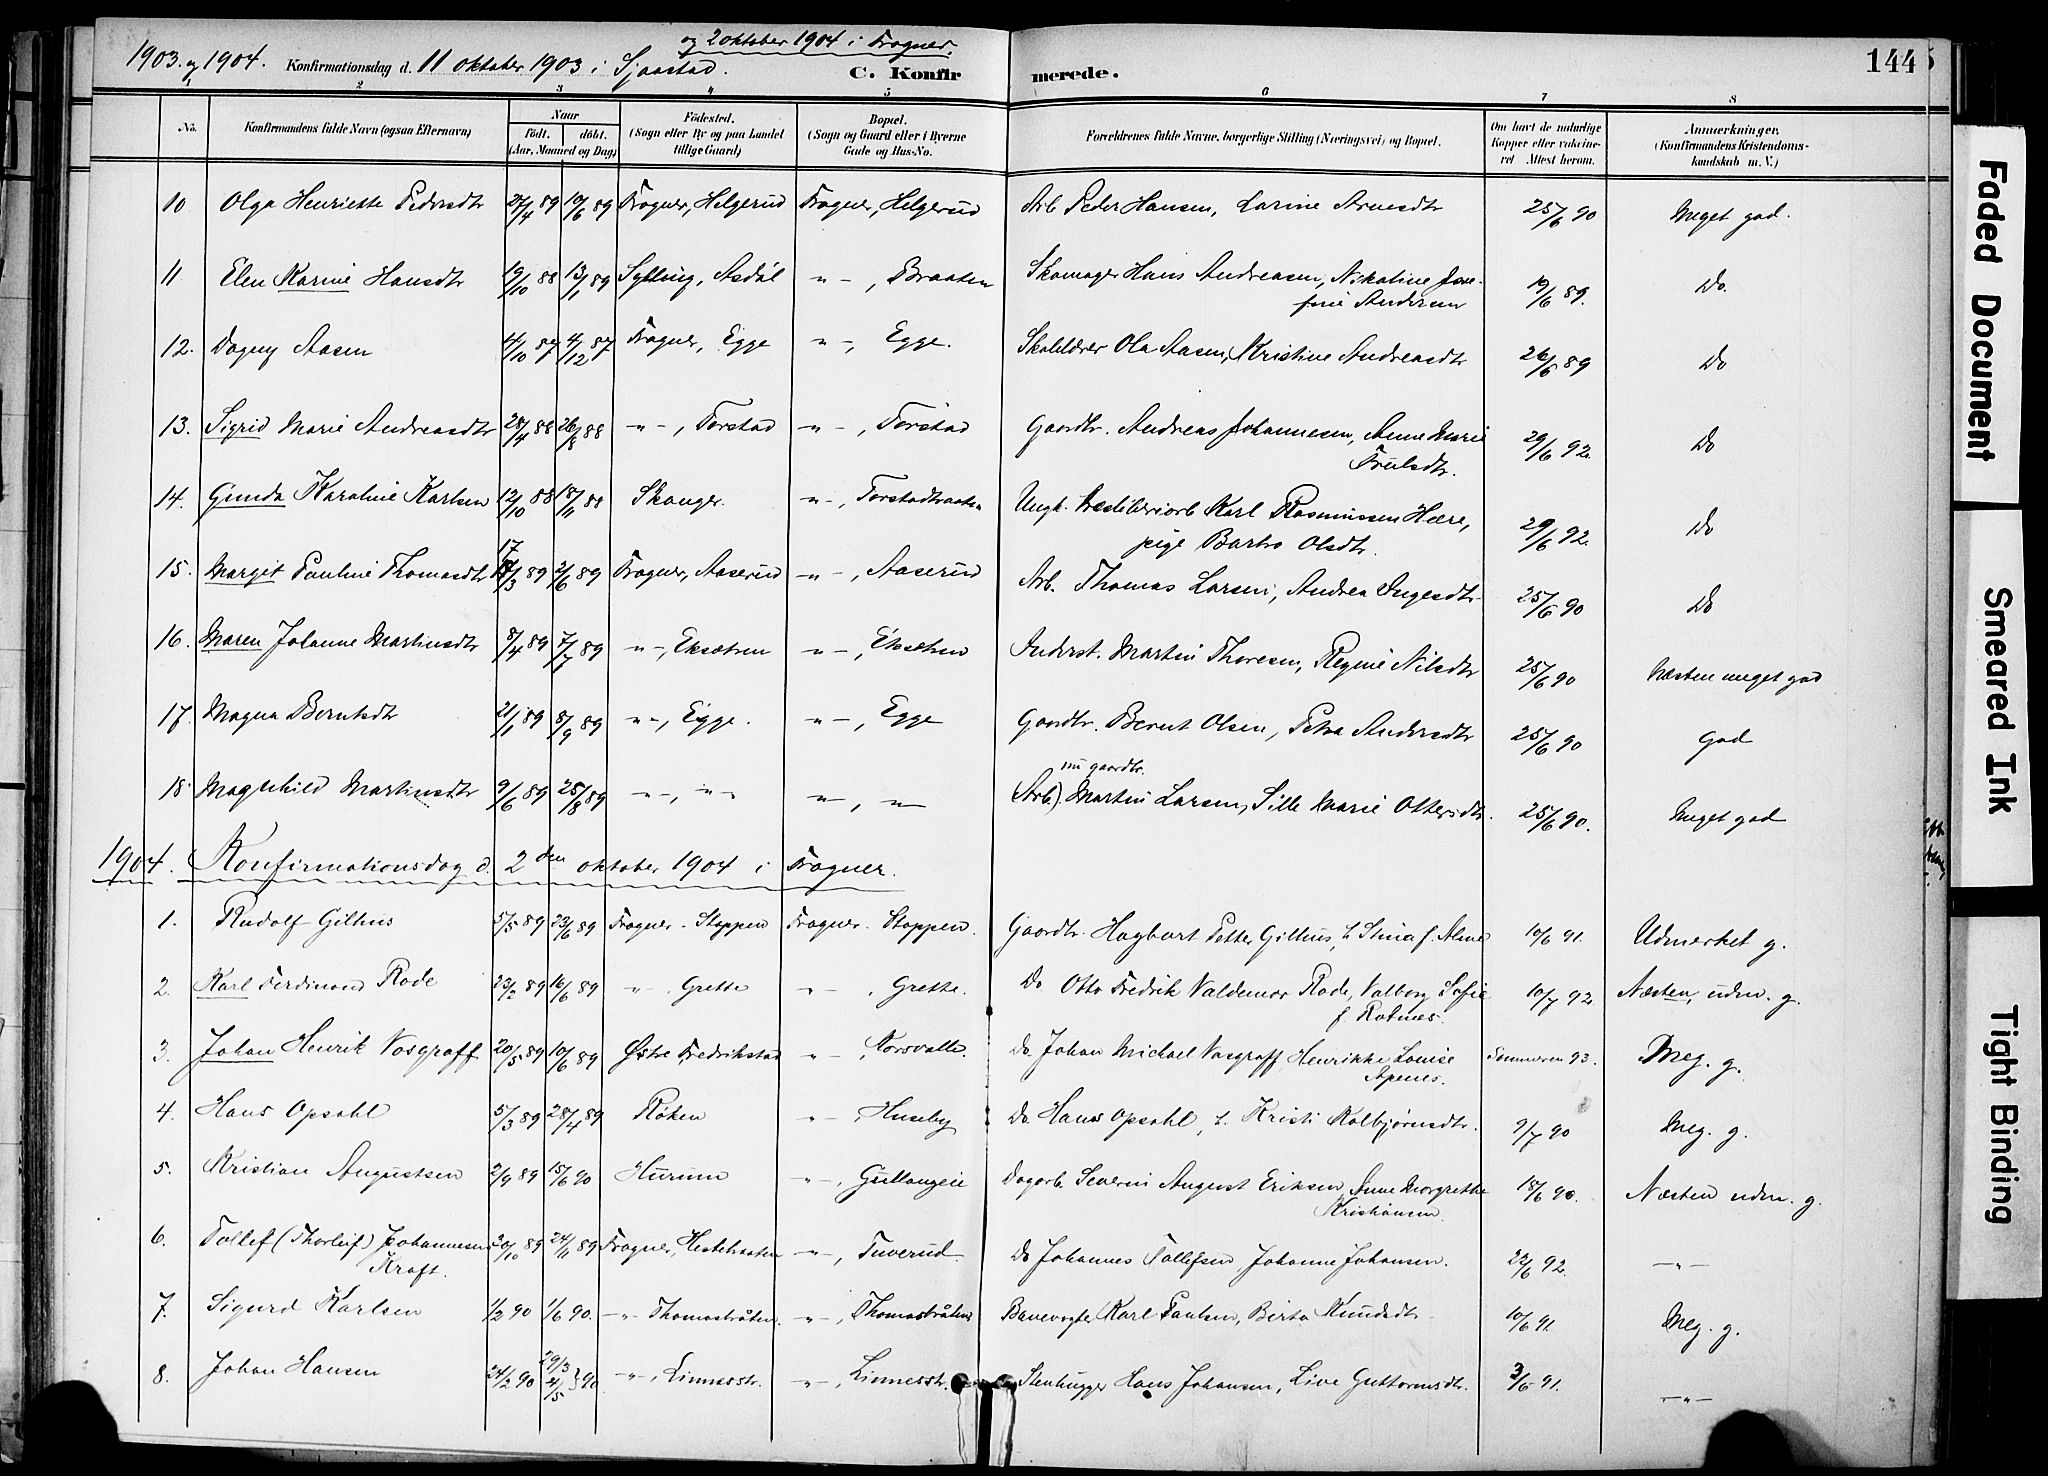 1903. og 1904. Konfirmationsdag d. 11 oktober 1903 i Sjaastad. og 2 oktober 1904 i Frogner. C. Konfirmerede. 144
1 2 3 4 5 6 7 8
No. Konfirmandens fulde Navn (ogsaa Efternavn) Naar født. døbt. (Aar, Maaned og Dag) Fødested. (Sogn eller By og paa Landet tillige Gaard) Bopæl. (Sogn og Gaard eller i Byerne Gade og Hus-No. Forældrenes fulde Navne, borgerlige Stilling (Næringsvei) og Bopæl. Om havt de naturlige Kopper eller vakcineret Attest herom. Anmærkninger, (Konfirmandens Kristendomskundskab m. V.)
10 Olga Henriette Pedersdtr 27/4 89 10/6 89 Frogner, Helgerud Frogner, Helgerud Arb. Peder Hansen, Larine Arnesdtr 25/6 90 Meget god.
11 Elen Karine Hansdtr 19/10 88 13/1 89 Sylling, Asdøl "-, Braaten Skomager Hans Andreasen, Nikoline Josefine Andersen 19/6 89. Do.
12. Dagny Aasen 4/10 87 4/12 87 Frogner, Egge "-, Egge. Skolelærer Ola Aasen, Kristine Andreasdtr 26/6 89 Do
13. Sigrid Marie Andreasdtr 28/4 88 26/8 88 "-, Torstad "-, Torstad Gaardbr. Andreas Johannesen, Anne Marie Trulsdtr. 29/6 92. Do
14. Gunda Karoline Karlsen 12/10 88 18/11 88 Skoger. "-, Torstadbraaten Ungk. Træsliberiarb Karl Rasmussen Hære, pige Barbro Olsdtr. 29/6 92. Do
15. Margit Pauline Thomasdtr 17/3 89 2/6 89 Frogner, Aaserud "-, Aaserud Arb. Thomas Larsen, Andrea Ingesdtr 25/6 90 Do
16. Maren Johanne Martinsdtr 8/4 89 7/7 89 "-, Eksætren "-, Eksætren Inderst. Martin Thoresen, Regine Nilsdtr 25/6 90 Næsten meget god
17. Magna Berntsdtr 21/1 89 8/9 89 "-, Egge. "-, Egge Gaardbr. Bernt Olsen, Petra Andersdtr 25/6 90 God
18 Magnhild Martinsdtr 9/6 89 25/8 89 "-, "- "-, "- (Arb.) nu gaardbr. Martin Larsen, Sille Marie Ottersdtr. 25/6 90. Meget god
1904. Konfirmationsdag d. 2den oktober 1904 i Frogner.
1. Rudolf Gilhus 5/5 89 23/6 89 Frogner - Stoppen Frogner. Stoppen. Gaardbr. Hagbart Petter Gilhus, h. Stina f. Alme 10/6 91. Udmerket g.
2. Karl Ferdinand Rode 23/2 89 16/6 89 "- , Grette "- , Grette. Do Otto Fredrik Valdemar Rode, Valborg Sofie f. Rotnes. 10/7 92. Næsten udm. g.
3. Johan Henrik Vosgraff 20/5 89 10/6 89 Østre Fredrikstad "- , Norsvolle Do. Johan Michael Vosgraff, Henrikke Louise Apenes. Sommeren 93. Meg. g.
4. Hans Opsahl 5/3 89 28/4 89 Røken "- , Huseby Do Hans Opsahl, h. Kristi Kolbjørnsdtr. 9/7 90 Meg. g.
5. Kristian Augustsen 2/9 89 15/6 90 Hurum "- , Gullaugeie Dagarb. Severin August Eriksen, Anne Margrethe Kristiansen. 18/6 90. Næsten udm. g.
6. Tollef (Thorleif) Johannesen Kraft. 30/10 89 24/11 89 Frogner, Hestebraaten "-, Tuverud Do Johannes Tollefsen, Johanne Johansen. 22/6 92. -"-
7. Sigurd Karlsen 1/2 90 1/6 90. "- Thomasbråten. "-, Thomasbråten Banevogter Karl Paulsen, Birte Knudsdtr 10/6 91. Meg. g.
8. Johan Hansen 24/2 90 29/3 4/5 } 90 "-, Linnesstr. "-, Linnesstr. Stenhugger Hans Johansen, Live Guttormsdtr. 3/6 91. -"-
Faded Document
Smeared Ink
Tight Binding